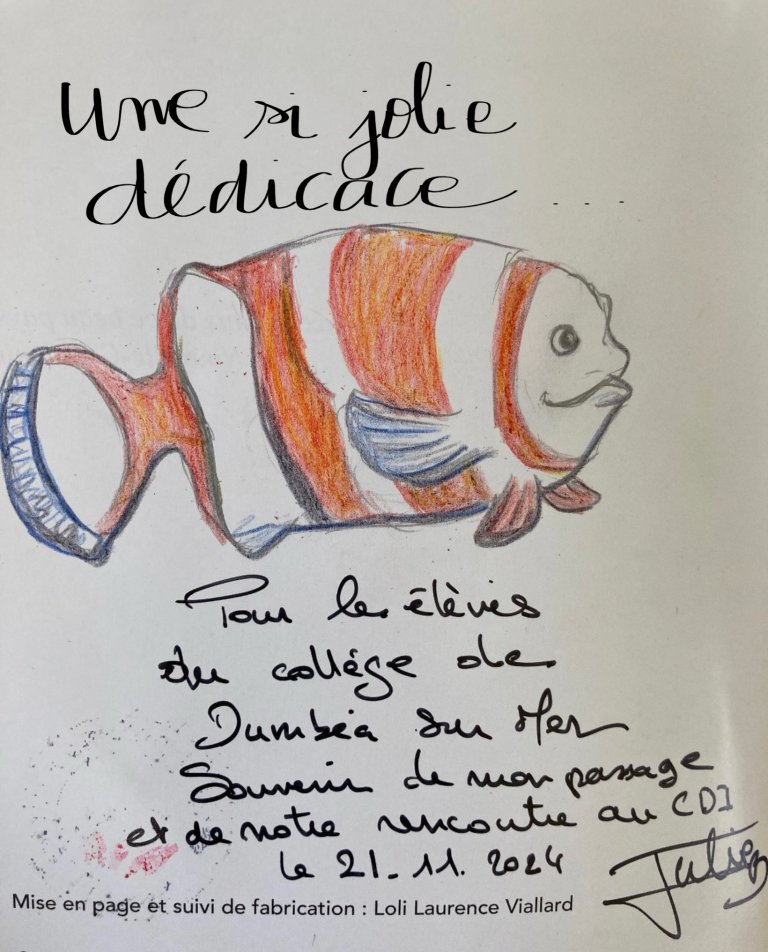 Une si jolie
dédicace ...
Pour les élèves
du collège de
Dumbéa sur Mer
Souvenir de mon passage
et de notre rencontre au CDI
le 21.11.2024
Julien
Mise en page et suivi de fabrication : Loli Laurence Viallard